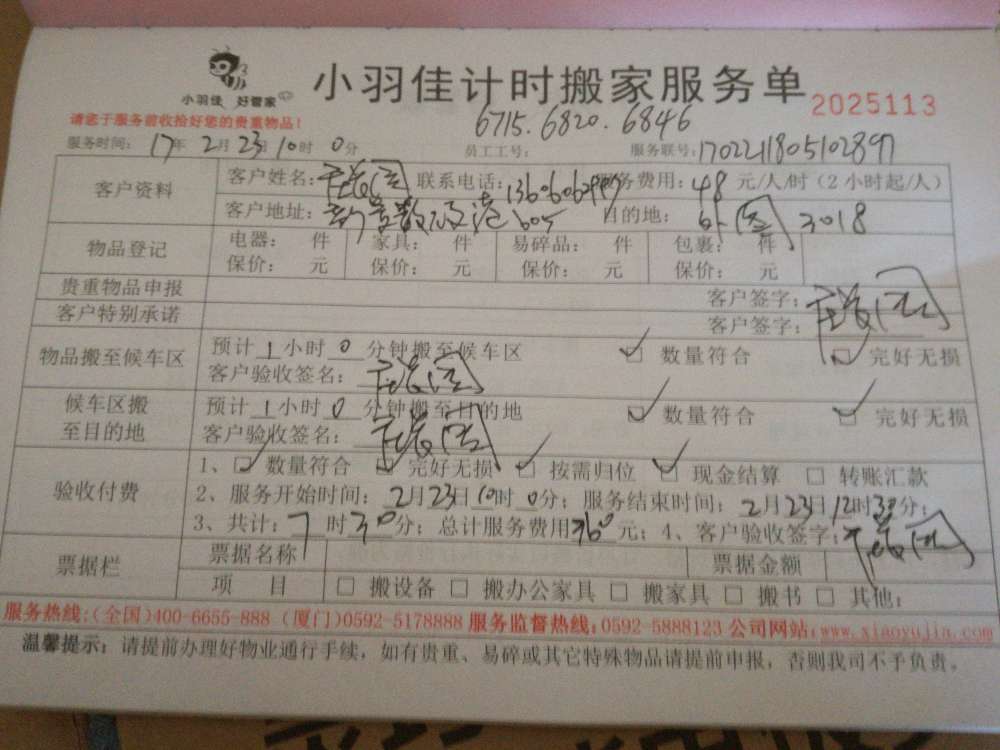 小羽佳 好管家
小羽佳计时搬家服务单
2025113
请您于服务前收拾好您的贵重物品!
6715.6820.6846
服务时间: 17年 2月 23日 10时 0分 员工工号: 服务联号: 1702211805102897
客户资料 客户姓名: 联系电话: 务费用: 48 元/人/时(2小时起/人)
客户地址: 605 目的地: 3018
物品登记 电器: 件 家具: 件 易碎品: 件 包裹: 件
保价: 元 保价: 元 保价: 元 保价: 元
贵重物品申报 客户签字:
客户特别承诺 客户签字:
物品搬至候车区 预计 1 小时 0 分钟搬至候车区 ☑ 数量符合 ☑ 完好无损
客户验收签名:
候车区搬至目的地 预计 1 小时 0 分钟搬至目的地 ☑ 数量符合 ☑ 完好无损
客户验收签名:
验收付费 1、☑ 数量符合 ☑ 完好无损 ☑ 按需归位 ☑ 现金结算 □ 转账汇款
2、服务开始时间: 2月23日10时 0分; 服务结束时间: 2月23日12时30分;
3、共计: 7 时30分; 总计服务费用360元; 4、客户验收签字:
票据栏 票据名称 票据金额
项 目 □ 搬设备 □ 搬办公家具 □ 搬家具 □ 搬书 □ 其他:
服务热线:(全国)400-6655-888 (厦门)0592-5178888 服务监督热线:0592-5888123 公司网站:www.xiaoyujia.com
温馨提示: 请提前办理好物业通行手续, 如有贵重、易碎或其它特殊物品请提前申报, 否则我司不予负责。